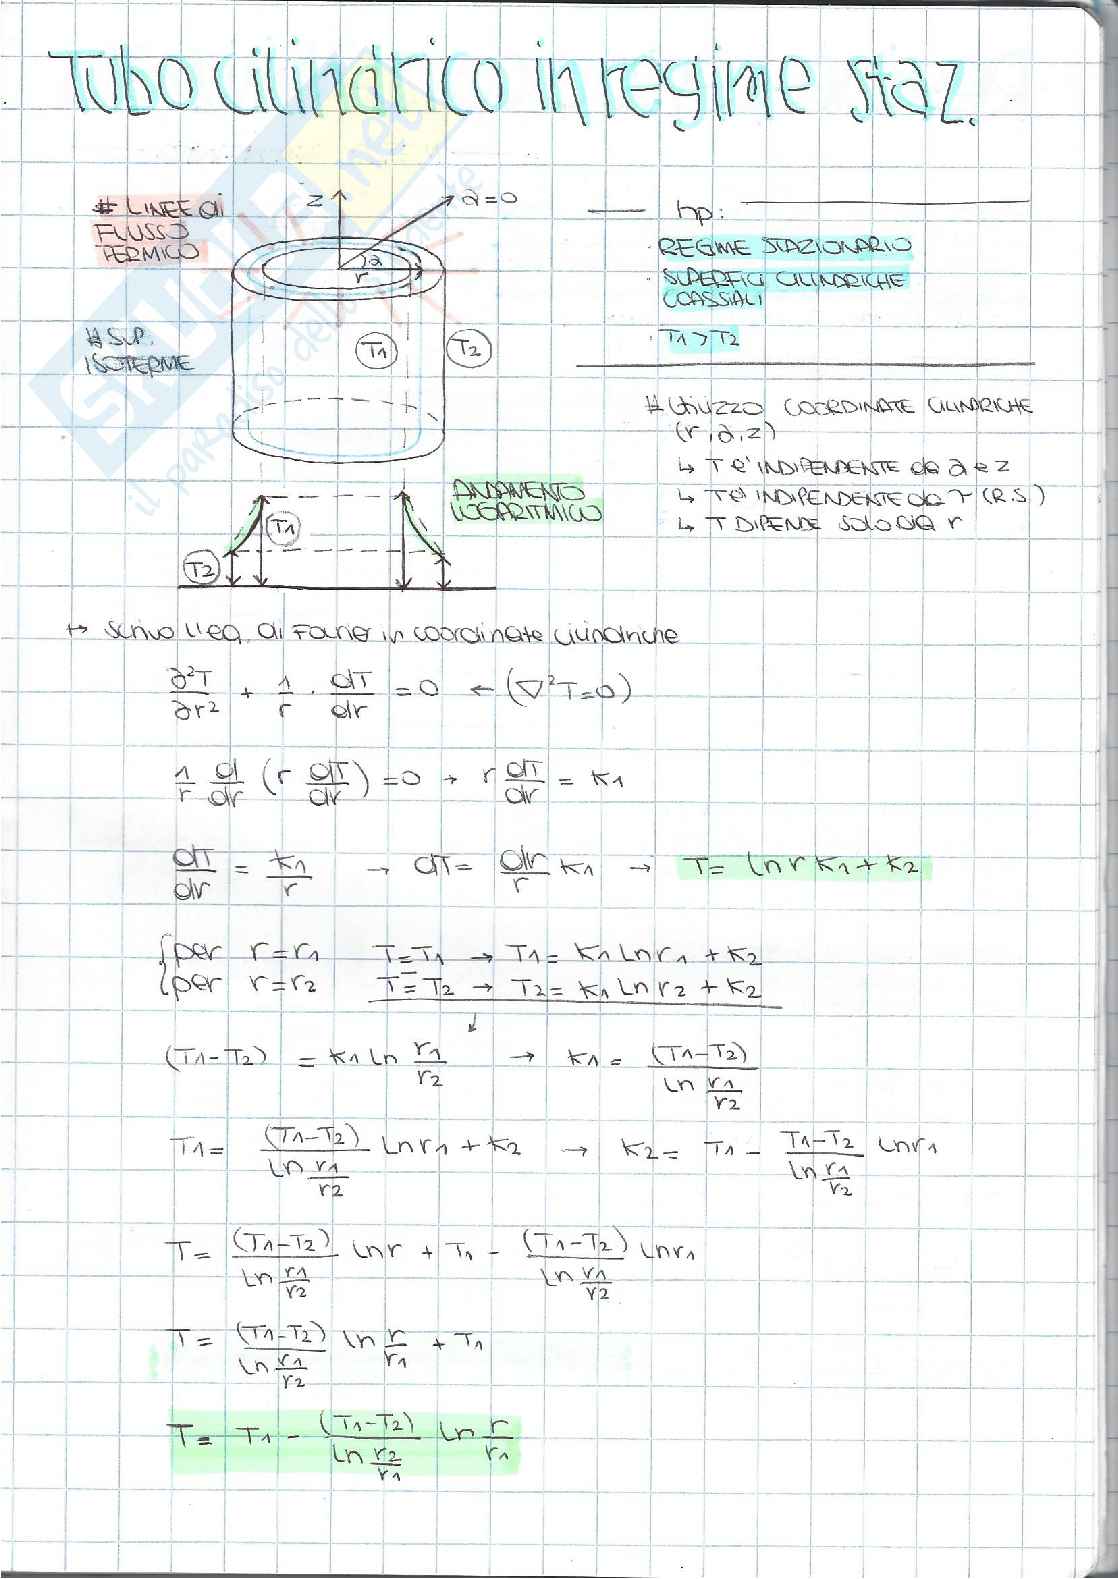 Tubo cilindrico in regime staz.
# LINEE di
FLUSSO
TERMICO
z
α=0
α
r
# SUP.
ISOTERME
T1
T2
hp:
· REGIME STAZIONARIO
· SUPERFICI CILINDRICHE
COASSIALI
· T1 > T2
# Utilizzo COORDINATE CILINDRICHE
(r, α, z)
↳ T e' INDIPENDENTE da α e z
↳ T e' INDIPENDENTE da τ (R.S.)
↳ T DIPENDE solo da r
ANDAMENTO
LOGARITMICO
T1
T2
↦ Scrivo l'eq. di Fourier in coordinate cilindriche
∂²T/∂r² + 1/r · dT/dr = 0 ← (∇²T=0)
1/r d/dr (r dT/dr) = 0 → r dT/dr = K1
dT/dr = K1/r → dT = dr/r K1 → T = ln r K1 + K2
{per r=r1 T=T1 → T1 = K1 ln r1 + K2
{per r=r2 T=T2 → T2 = K1 ln r2 + K2
↓
(T1-T2) = K1 ln r1/r2 → K1 = (T1-T2)/ln r1/r2
T1 = (T1-T2)/ln r1/r2 ln r1 + K2 → K2 = T1 - T1-T2/ln r1/r2 ln r1
T = (T1-T2)/ln r1/r2 ln r + T1 - (T1-T2)/ln r1/r2 ln r1
T = (T1-T2)/ln r1/r2 ln r/r1 + T1
T = T1 - (T1-T2)/ln r2/r1 ln r/r1
SKUOLA.net
il paradiso dello studente